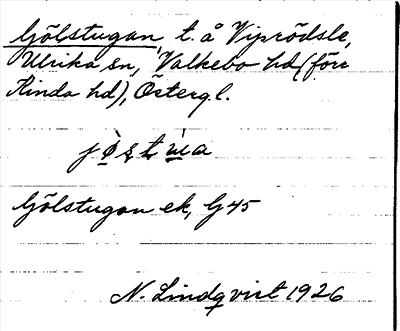 Gölstugan, t. å Viprödsle,
Ulrika sn, Valkebo hd (förr
Kinda hd), Östergl.
Gölstugan ek, G 45
N. Lindqvist 1926